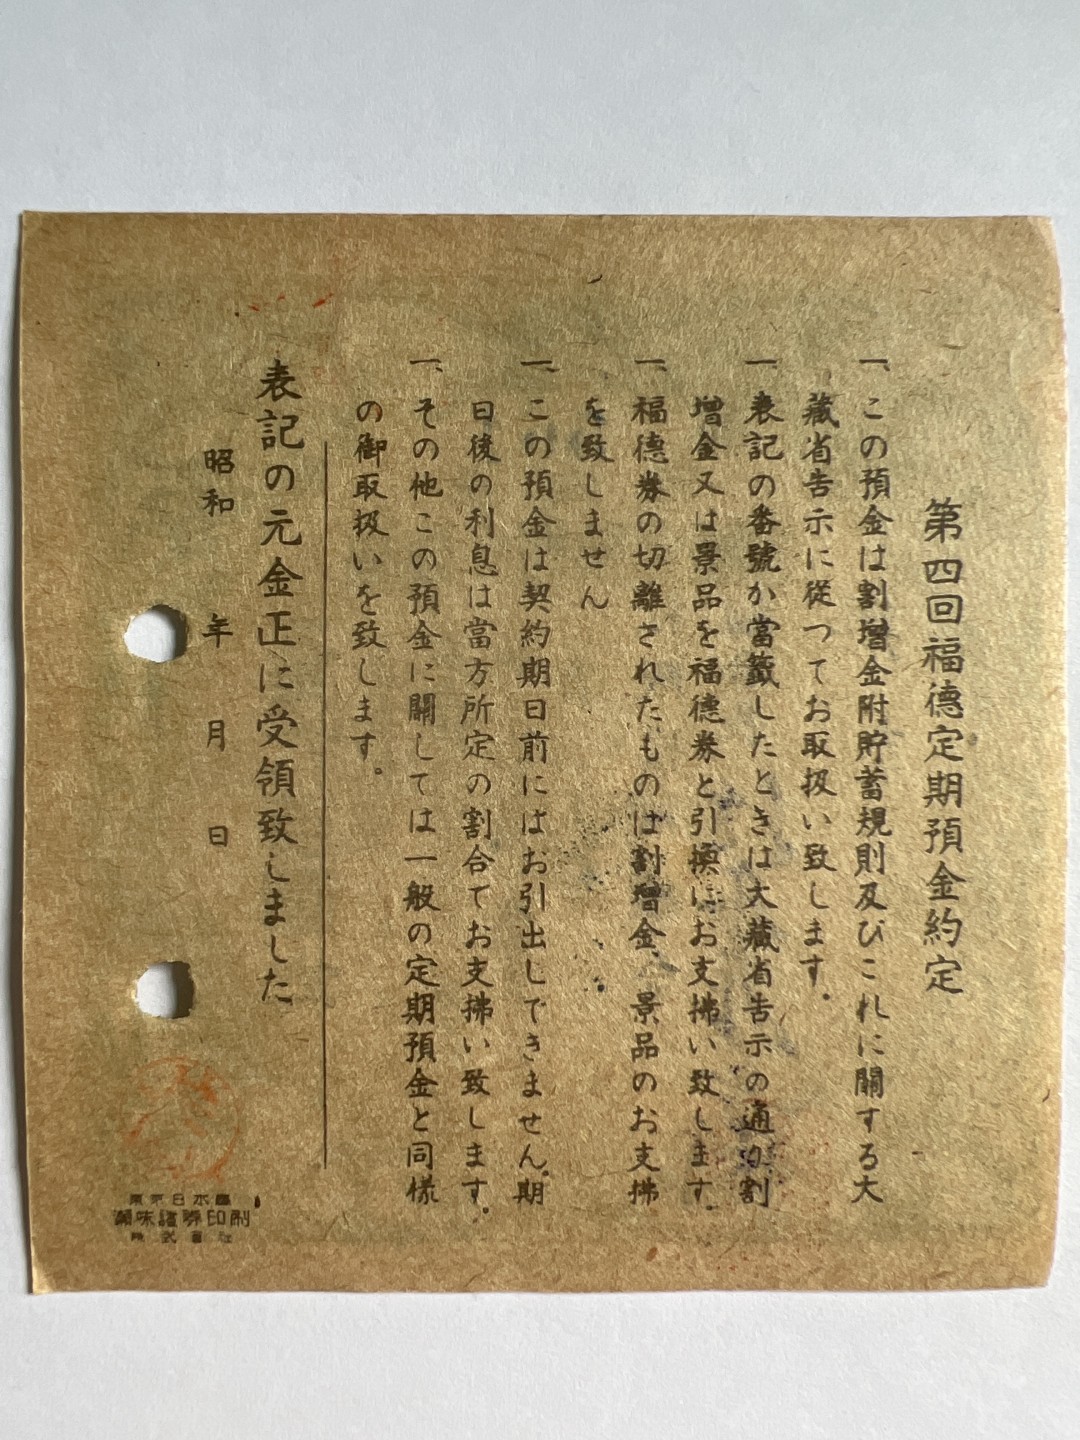 第四回福德定期預金約定
一、この預金は割増金附貯蓄規則及びこれに關する大
藏省告示に従つてお取扱い致します。
一、表記の番號か當籤したときは大藏省告示の通り割
増金又は景品を福德券と引換にお支拂い致します。
一、福德券の切離されたものは割増金、景品のお支拂
を致しません
一、この預金は契約期日前にはお引出しできません。期
日後の利息は當方所定の割合でお支拂い致します。
一、その他この預金に關しては一般の定期預金と同様
の御取扱いを致します。
表記の元金正に受領致しました
昭和　年　月　日
東京日本橋
証券印刷
株式會社